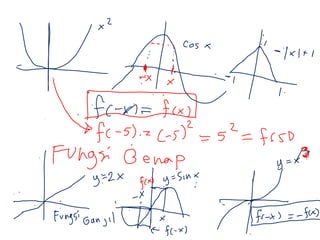 x²
cos x
-|x|+1
1
-x
x
-1
1
f(-x) = f(x)
f(-5) = (-5)² = 5² = f(5)
FUNgsi Genap
y=2x
f(x)
y=sin x
y=x³
-x
x
Fungsi Ganjil
f(-x)
f(-x) = -f(x)